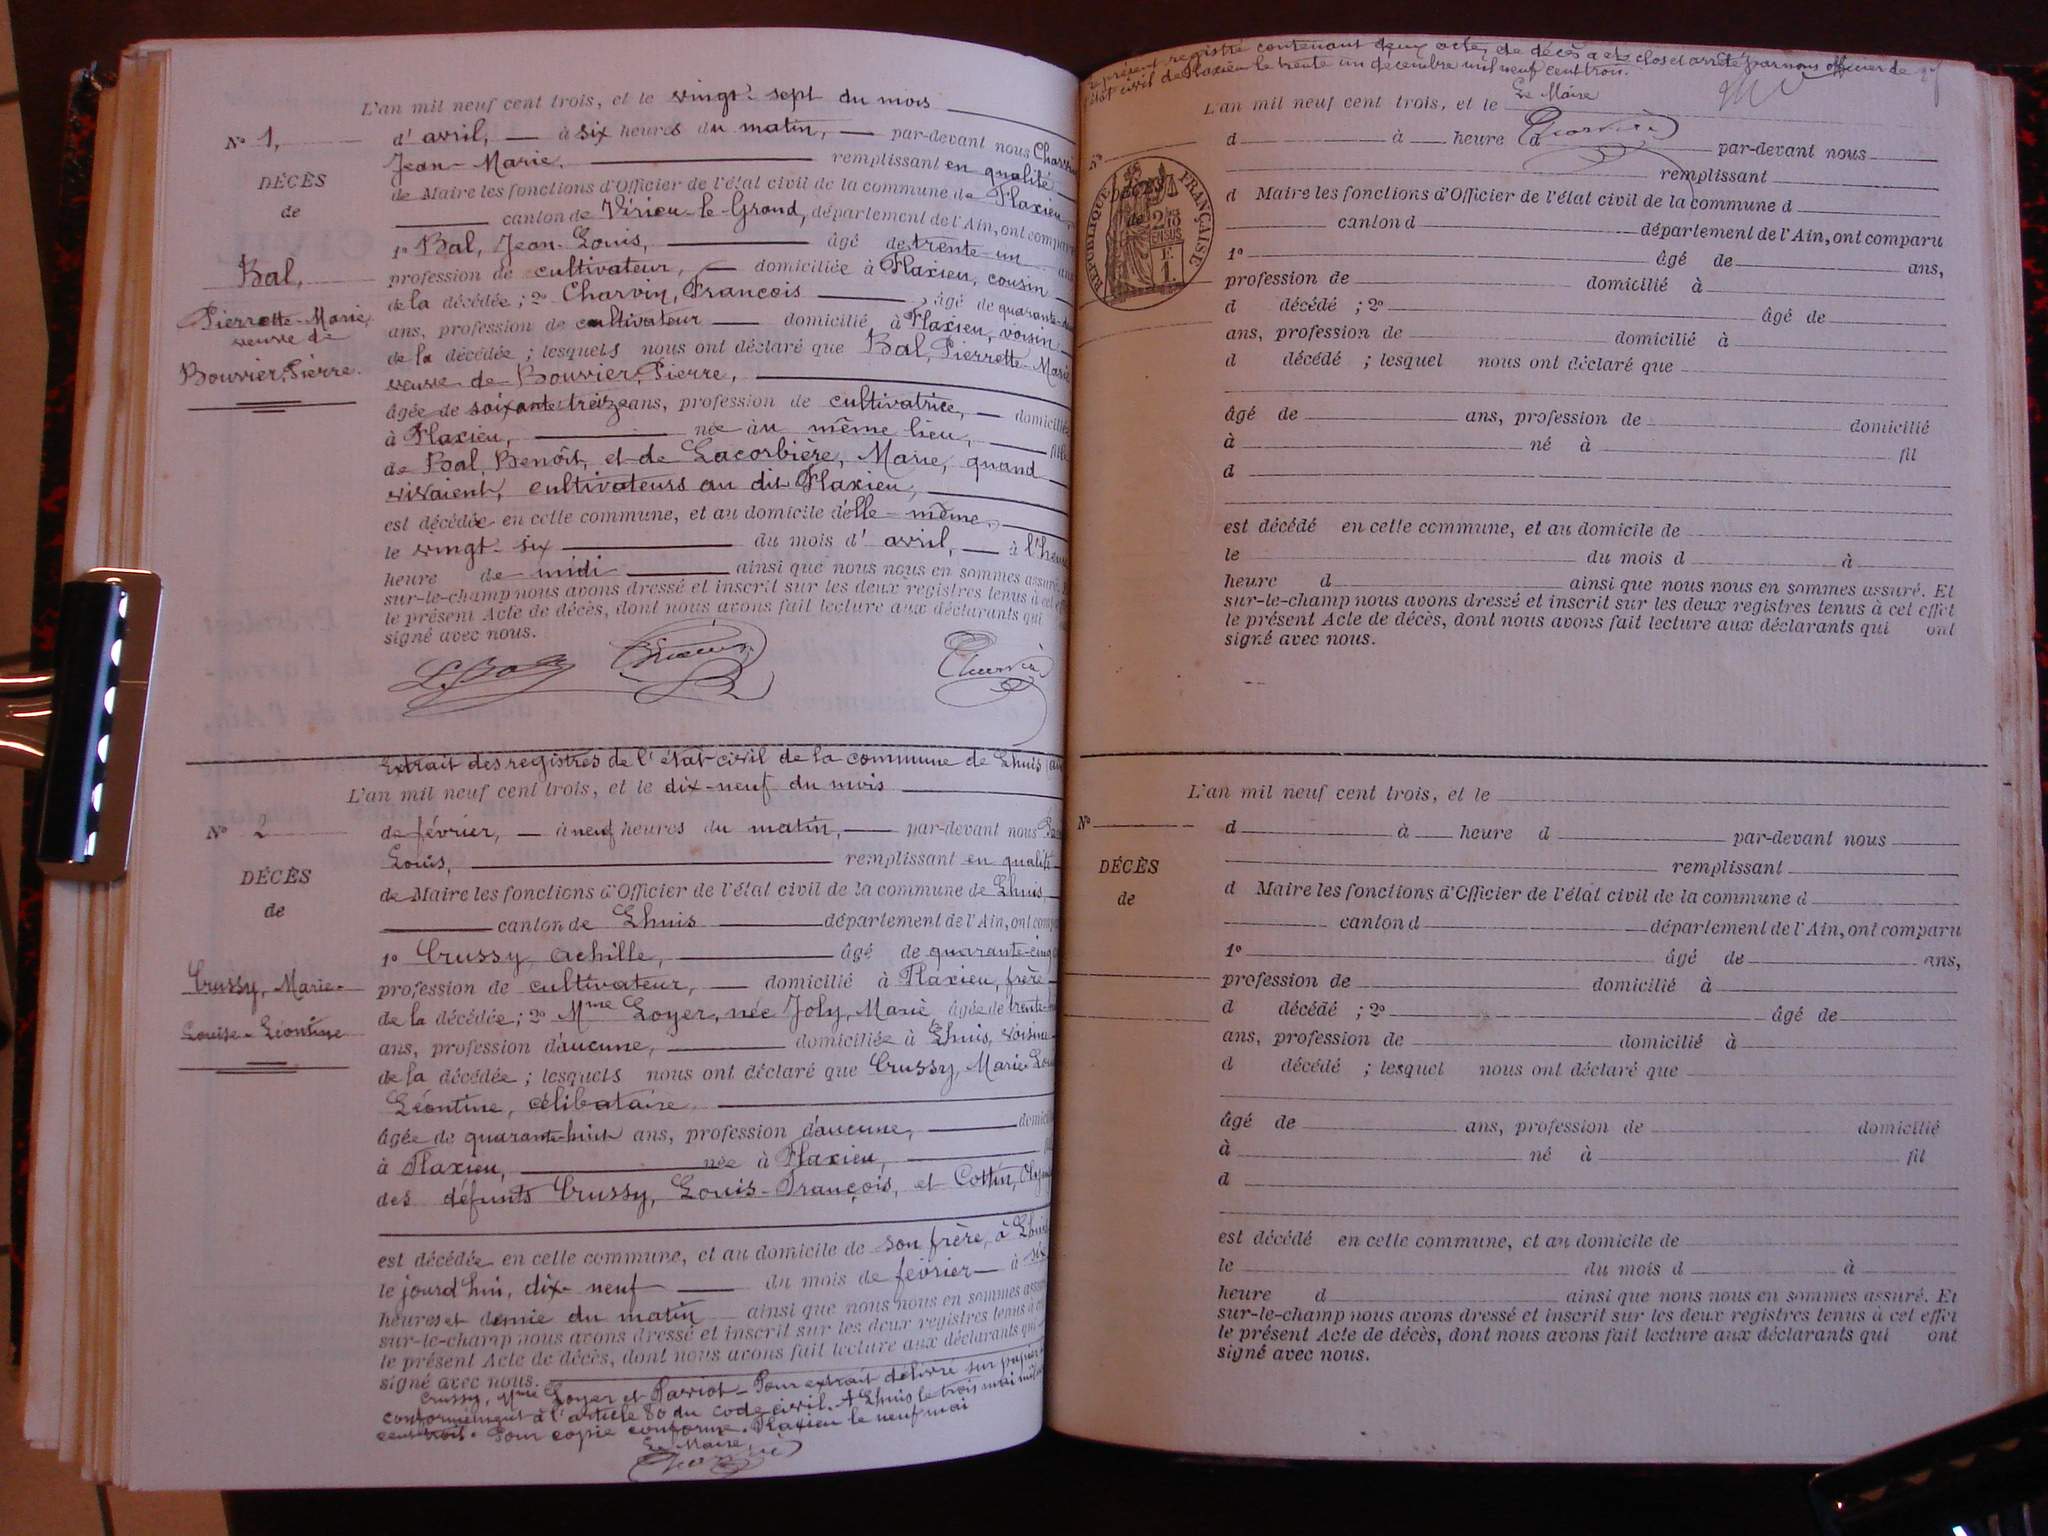 L'an mil neuf cent trois, et le vingt-sept du mois
N° 1,
d'avril, à six heures du matin, par-devant nous
Jean-Marie, remplissant en qualité
DÉCÈS
de Maire les fonctions d'Officier de l'état civil de la commune de Flaxieu,
de
canton de Virieu-le-Grand, département de l'Ain, ont
1° Bal, Jean-Louis, âgé de trente-un
Bal,
profession de cultivateur, domicilié à Flaxieu, cousin
de la décédée ; 2° Charvin, François, âgé de
Pierrette-Marie,
ans, profession de cultivateur domicilié à Flaxieu, voisin
veuve de
de la décédée ; lesquels nous ont déclaré que Bal, Pierrette-Marie
Bouvier, Pierre.
veuve de Bouvier, Pierre,
âgée de soixante treize ans, profession de cultivatrice, domiciliée
à Flaxieu, née au même lieu, fille
de Bal, Benoît, et de Lacorbière, Marie, quand
vivaient, cultivateurs au dit Flaxieu,
est décédée en cette commune, et au domicile d'elle-même,
le vingt-six du mois d'avril, à l'heure
heure de midi ainsi que nous nous en sommes assuré.
sur-le-champ nous avons dressé et inscrit sur les deux registres tenus à cet
le présent Acte de décès, dont nous avons fait lecture aux déclarants qui
signé avec nous.
L. Bal Charvin Charvin
Extrait des registres de l'état-civil de la commune de Lhuis
L'an mil neuf cent trois, et le dix-neuf du mois
N° 2
de février, à neuf heures du matin, par-devant nous
Louis, remplissant en qualité
DÉCÈS
de Maire les fonctions d'Officier de l'état civil de la commune de Lhuis,
de
canton de Lhuis département de l'Ain, ont
1° Crussy Achille, âgé de quarante-cinq
Crussy, Marie-
profession de cultivateur, domicilié à Flaxieu, frère
de la décédée ; 2° Mme Loyer, née Joly, Marie âgée de
Louise-Léontine
ans, profession d'aucune, domiciliée à Lhuis, voisine
de la décédée ; lesquels nous ont déclaré que Crussy, Marie
Léontine, célibataire
âgée de quarante-huit ans, profession d'aucune,
à Flaxieu, née à Flaxieu,
des défunts Crussy, Louis-François, et Cottin,
est décédée en cette commune, et au domicile de son frère, à Lhuis
le jourd'hui, dix-neuf du mois de février à six
heures et demie du matin ainsi que nous nous en sommes
sur-le-champ nous avons dressé et inscrit sur les deux registres tenus à
le présent Acte de décès, dont nous avons fait lecture aux déclarants qui
signé avec nous.
Crussy, Mme Loyer et Parriot. Pour extrait délivré sur papier
conformément à l'article 80 du code civil. A Lhuis le trois mai
cent trois. Pour copie conforme. Flaxieu le neuf mai
Le Maire,
Charvin
présent registre contenant deux actes de décès a été clos et arrêté par nous officier de
l'état civil de Flaxieu le trente un décembre mil neuf cent trois.
Le Maire
Charvin
L'an mil neuf cent trois, et le
N°
d à heure d par-devant nous
remplissant
DÉCÈS
d Maire les fonctions d'Officier de l'état civil de la commune d
de
canton d département de l'Ain, ont comparu
RÉPUBLIQUE FRANÇAISE
1° âgé de ans,
profession de domicilié à
d décédé ; 2° âgé de
ans, profession de domicilié à
d décédé ; lesquel nous ont déclaré que
âgé de ans, profession de domicilié
à né à fil
d
est décédé en cette commune, et au domicile de
le du mois d à
heure d ainsi que nous nous en sommes assuré. Et
sur-le-champ nous avons dressé et inscrit sur les deux registres tenus à cet effet
le présent Acte de décès, dont nous avons fait lecture aux déclarants qui ont
signé avec nous.
L'an mil neuf cent trois, et le
N°
d à heure d par-devant nous
remplissant
DÉCÈS
d Maire les fonctions d'Officier de l'état civil de la commune d
de
canton d département de l'Ain, ont comparu
1° âgé de ans,
profession de domicilié à
d décédé ; 2° âgé de
ans, profession de domicilié à
d décédé ; lesquel nous ont déclaré que
âgé de ans, profession de domicilié
à né à fil
d
est décédé en cette commune, et au domicile de
le du mois d à
heure d ainsi que nous nous en sommes assuré. Et
sur-le-champ nous avons dressé et inscrit sur les deux registres tenus à cet effet
le présent Acte de décès, dont nous avons fait lecture aux déclarants qui ont
signé avec nous.